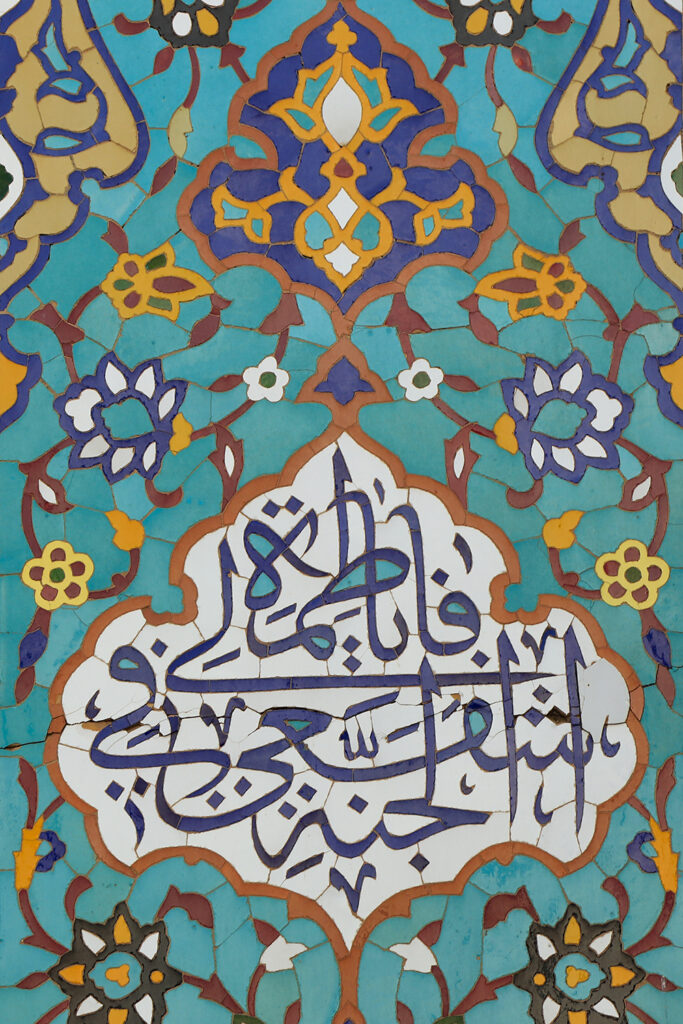 يا فاطمة
اشفعي لي في الجنة